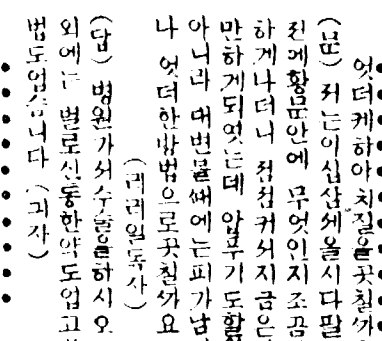 엇더케하야 치질을곳칠ᄭᅡ
(문) 저는이십삼세올시다팔
전에황문안에 무엇인지조ᄭᅳᆷ
하게나더니 점점커서지금은
만하게되엿는데 압푸기도할
아니라 대변볼ᄯᅢ에는피가
나 엇더한방법으로곳칠ᄭᅡ요
(리리일독자)
(답) 병원가서수술을하시오
외에는 별로신통한약도업고
법도업습니다 (긔자)